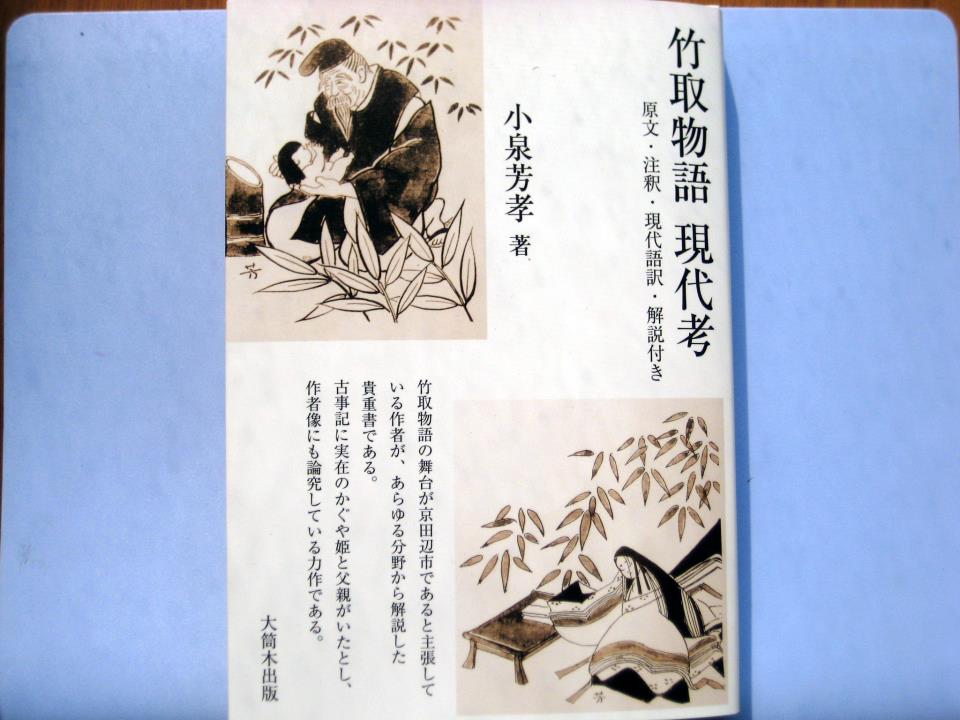 竹取物語 現代考
原文・注釈・現代語訳・解説付き
小泉芳孝 著
竹取物語の舞台が京田辺市であると主張して
いる作者が、あらゆる分野から解説した
貴重書である。
古事記に実在のかぐや姫と父親がいたとし、
作者像にも論究している力作である。
大筒木出版
芳
芳